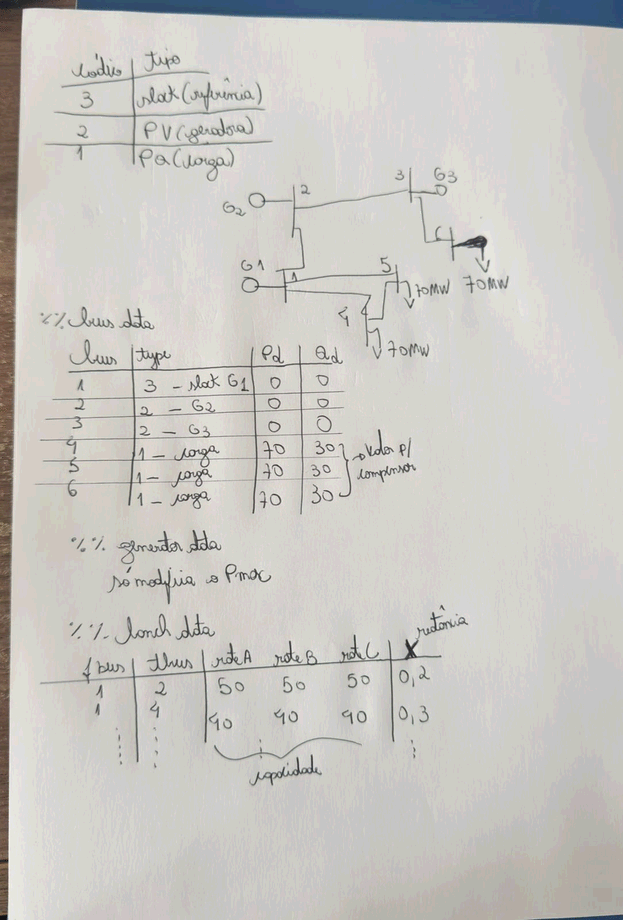 Código | tipo
3 | slak (referência)
2 | PV (geradora)
1 | PQ (carga)
G2 2 3 G3
G1 1 5 70MW 70MW
4 70MW
%% bus data
bus | type | Pd | Qd
1 | 3 - slak G1 | 0 | 0
2 | 2 - G2 | 0 | 0
3 | 2 - G3 | 0 | 0
4 | 1 - carga | 70 | 30
5 | 1 - carga | 70 | 30
6 | 1 - carga | 70 | 30
Valor p/
compensar
%% generator data
só modifica o Pmax
%% branch data
f bus | tbus | rateA rateB rateC | X reatância
1 | 2 | 50 50 50 | 0,2
1 | 4 | 40 40 40 | 0,3
capacidade